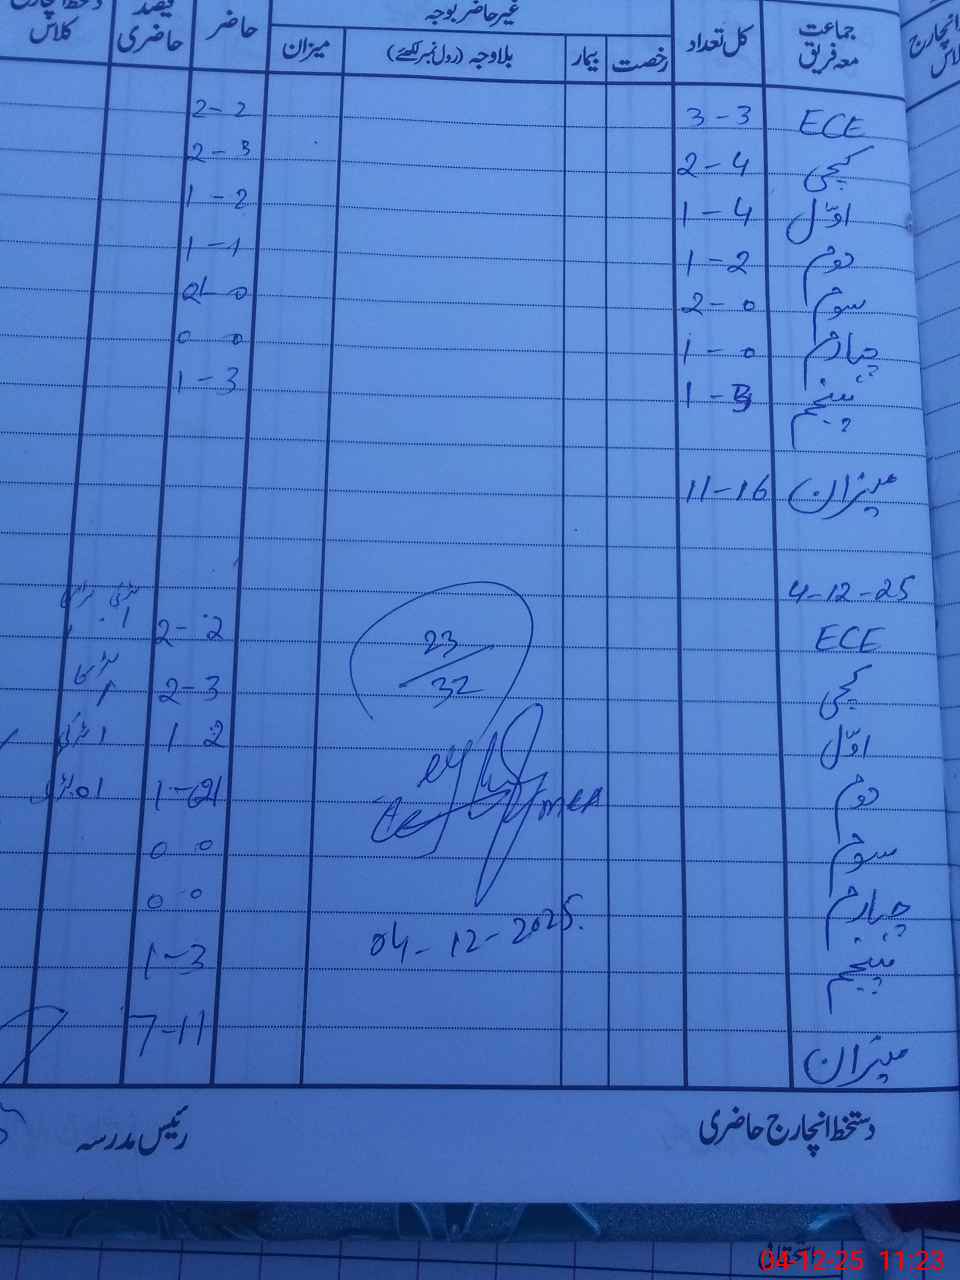 انچارج
کلاس
جماعت معہ فریق
کل تعداد
غیر حاضر بوجہ
رخصت
بیمار
بلاوجہ (رول نمبر لکھئے)
میزان
حاضر
فیصد حاضری
دستخط انچارج کلاس
ECE 3-3 2-2
کچی 2-4 2-3
اوّل 1-4 1-2
دوم 1-2 1-1
سوم 2-0 0
چہارم 1-0 0 0
پنجم 1- 1-3
میزان 11-16
4-12-25
ECE 2-2
کچی 2-3
23/32
اوّل 1 2
دوم 1-
سوم 0 0
چہارم 0 0
04-12-2025.
پنجم 1-3
میزان 7-11
دستخط انچارج حاضری
رئیس مدرسہ
04-12-25 11:23